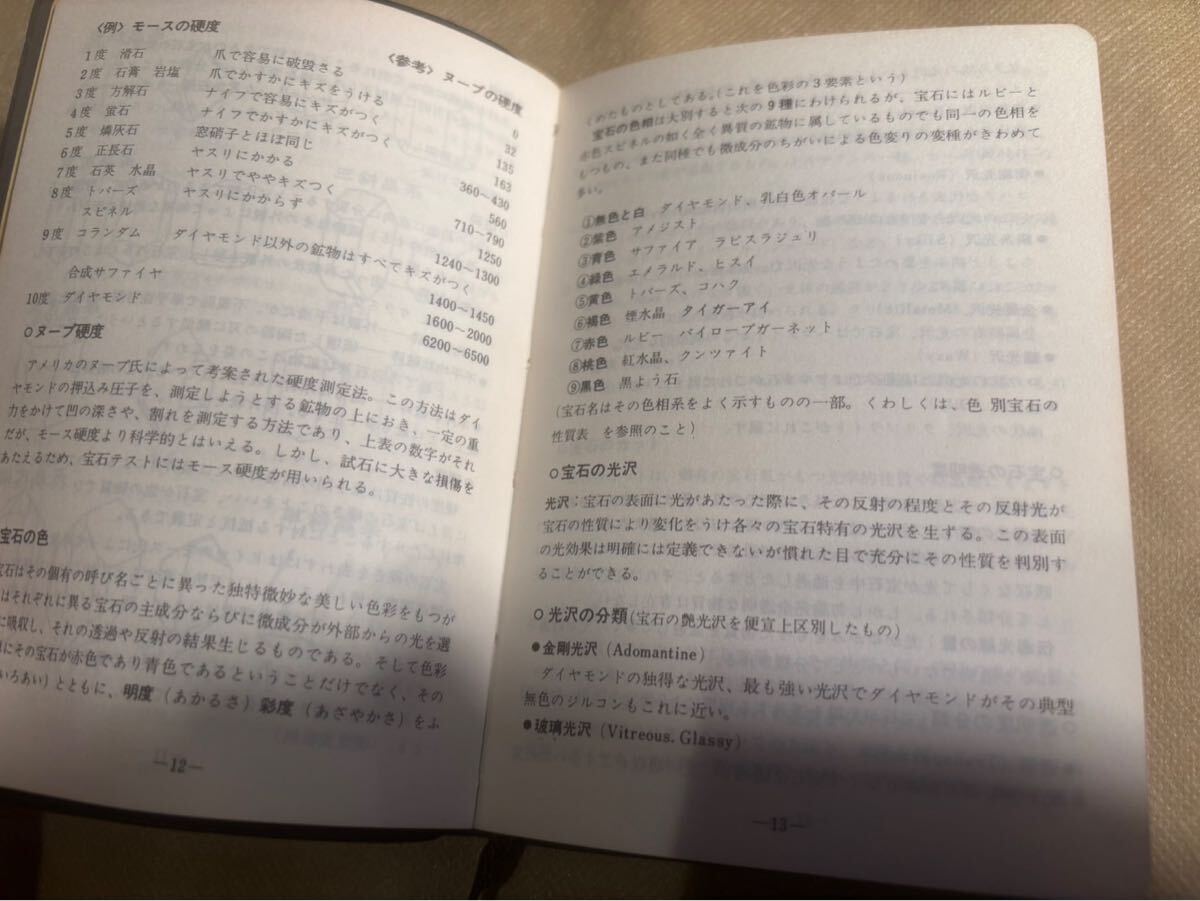 〈例〉モースの硬度
〈参考〉ヌープの硬度
1度 滑石 爪で容易に破毀さる
2度 石膏 岩塩 爪でかすかにキズをうける 32
3度 方解石 ナイフで容易にキズがつく 135
4度 螢石 ナイフでかすかにキズがつく 163
5度 燐灰石 窓硝子とほぼ同じ 360〜430
6度 正長石 ヤスリにかかる 560
7度 石英 水晶 ヤスリでややキズつく 710〜790
8度 トパーズ ヤスリにかからず 1250
スピネル 1240〜1300
9度 コランダム ダイヤモンド以外の鉱物はすべてキズがつく
1400〜1450
合成サファイヤ 1600〜2000
10度 ダイヤモンド 6200〜6500
○ヌープ硬度
アメリカのヌープ氏によって考案された硬度測定法。この方法はダイ
ヤモンドの押込み圧子を、測定しようとする鉱物の上におき、一定の重
力をかけて凹の深さや、割れを測定する方法であり、上表の数字がそれ
だが、モース硬度より科学的とはいえる。しかし、試石に大きな損傷を
あたえるため、宝石テストにはモース硬度が用いられる。
宝石の色
宝石はその個有の呼び名ごとに異った独特微妙な美しい色彩をもつが
はそれぞれに異る宝石の主成分ならびに微成分が外部からの光を選
に吸収し、それの透過や反射の結果生じるものである。そして色彩
にその宝石が赤色であり青色であるということだけでなく、その
いろあい)とともに、明度(あかるさ)彩度(あざやかさ)をふ
—12—
くめたものとしてある。(これを色彩の3要素という)
宝石の色相は大別すると次の9種にわけられるが、宝石にはルビーと
赤色スピネルの如く全く異質の鉱物に属しているものでも同一の色相を
もつもの、また同種でも微成分のちがいによる色変りの変種がきわめて
多い。
①無色と白 ダイヤモンド、乳白色オパール
②紫色 アメジスト
③青色 サファイア、ラピスラジュリ
④緑色 エメラルド、ヒスイ
⑤黄色 トパーズ、コハク
⑥褐色 煙水晶、タイガーアイ
⑦赤色 ルビー、パイロープガーネット
⑧桃色 紅水晶、クンツァイト
⑨黒色 黒よう石
(宝石名はその色相系をよく示すものの一部。くわしくは、色 別宝石の
性質表 を参照のこと)
○宝石の光沢
光沢:宝石の表面に光があたった際に、その反射の程度とその反射光が
宝石の性質により変化をうけ各々の宝石特有の光沢を生ずる。この表面
の光効果は明確には定義できないが慣れた目で充分にその性質を判別す
ることができる。
○光沢の分類(宝石の艶光沢を便宣上区別したもの)
●金剛光沢(Adomantine)
ダイヤモンドの独得な光沢、最も強い光沢でダイヤモンドがその典型
無色のジルコンもこれに近い。
●玻璃光沢(Vitreous. Glassy)
—13—